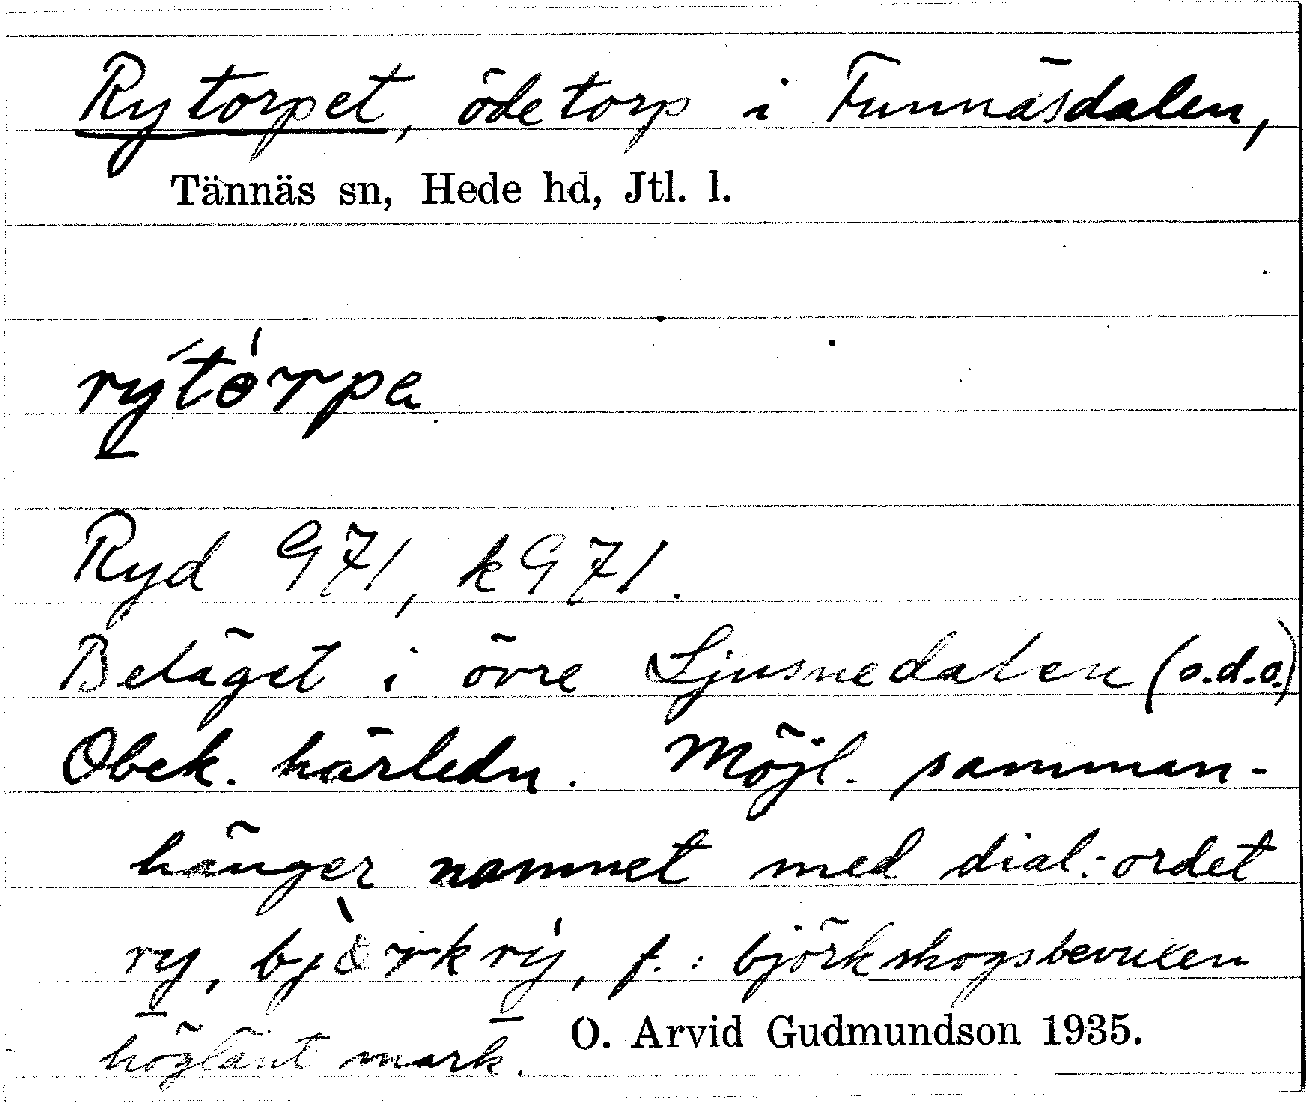 Rytorpet, ödetorp i Funnäsdalen,
Tännäs sn, Hede hd, Jtl. l.
rýtórpa
Ryd 971, k971.
Beläget i övre Ljusnedalen (o.d.o.)
Obek. härledn. Möjl. samman-
hänger namnet med dial.-ordet
ry, bjòrkrý, f.: björkskogsbevuxen
höglänt mark.
O. Arvid Gudmundson 1935.